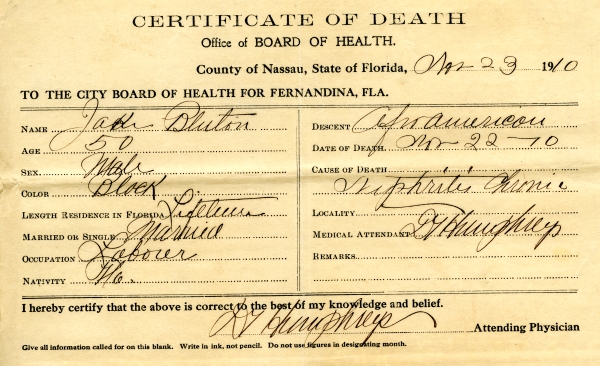 CERTIFICATE OF DEATH
Office of BOARD OF HEALTH.
County of Nassau, State of Florida, Nov 23 1910
TO THE CITY BOARD OF HEALTH FOR FERNANDINA, FLA.
NAME Jake
AGE 50
SEX Male
COLOR Black
LENGTH RESIDENCE IN FLORIDA Lifetime
MARRIED OR SINGLE Married
OCCUPATION Laborer
NATIVITY
DESCENT Afro american
DATE OF DEATH Nov 22-10
CAUSE OF DEATH
Nephritis Chronic
LOCALITY
MEDICAL ATTENDANT Humphreys
REMARKS
I hereby certify that the above is correct to the best of my knowledge and belief.
Humphreys Attending Physician
Give all information called for on this blank. Write in ink, not pencil. Do not use figures in designating month.